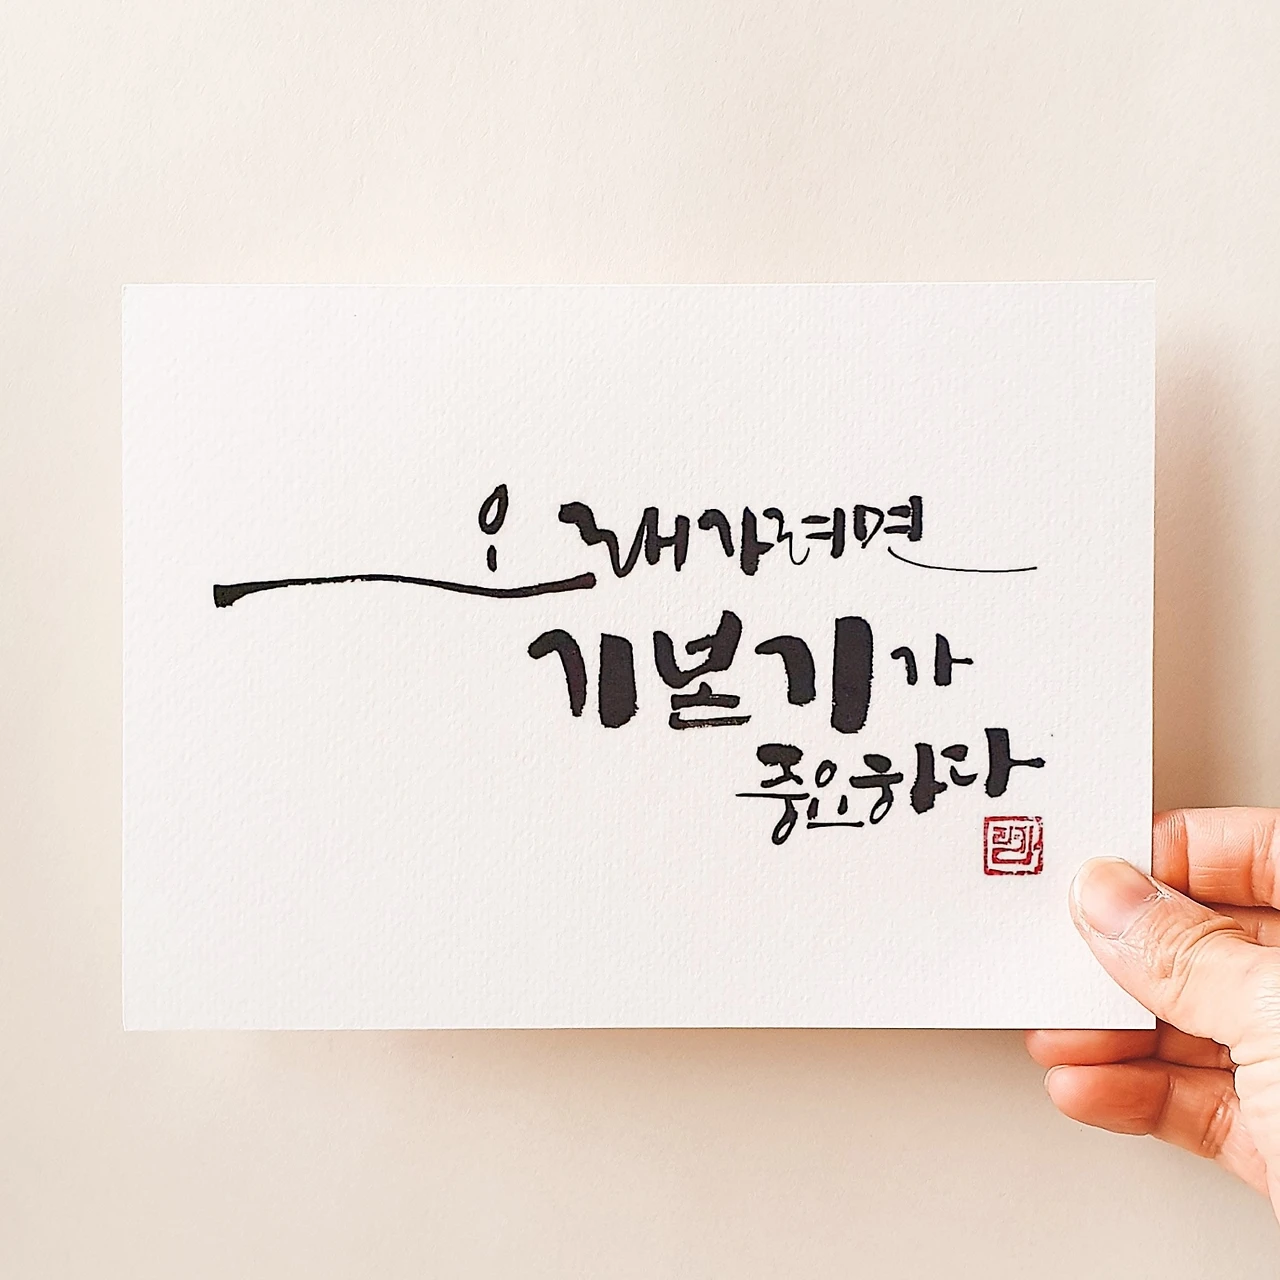 오래가려면
기본기가
중요하다